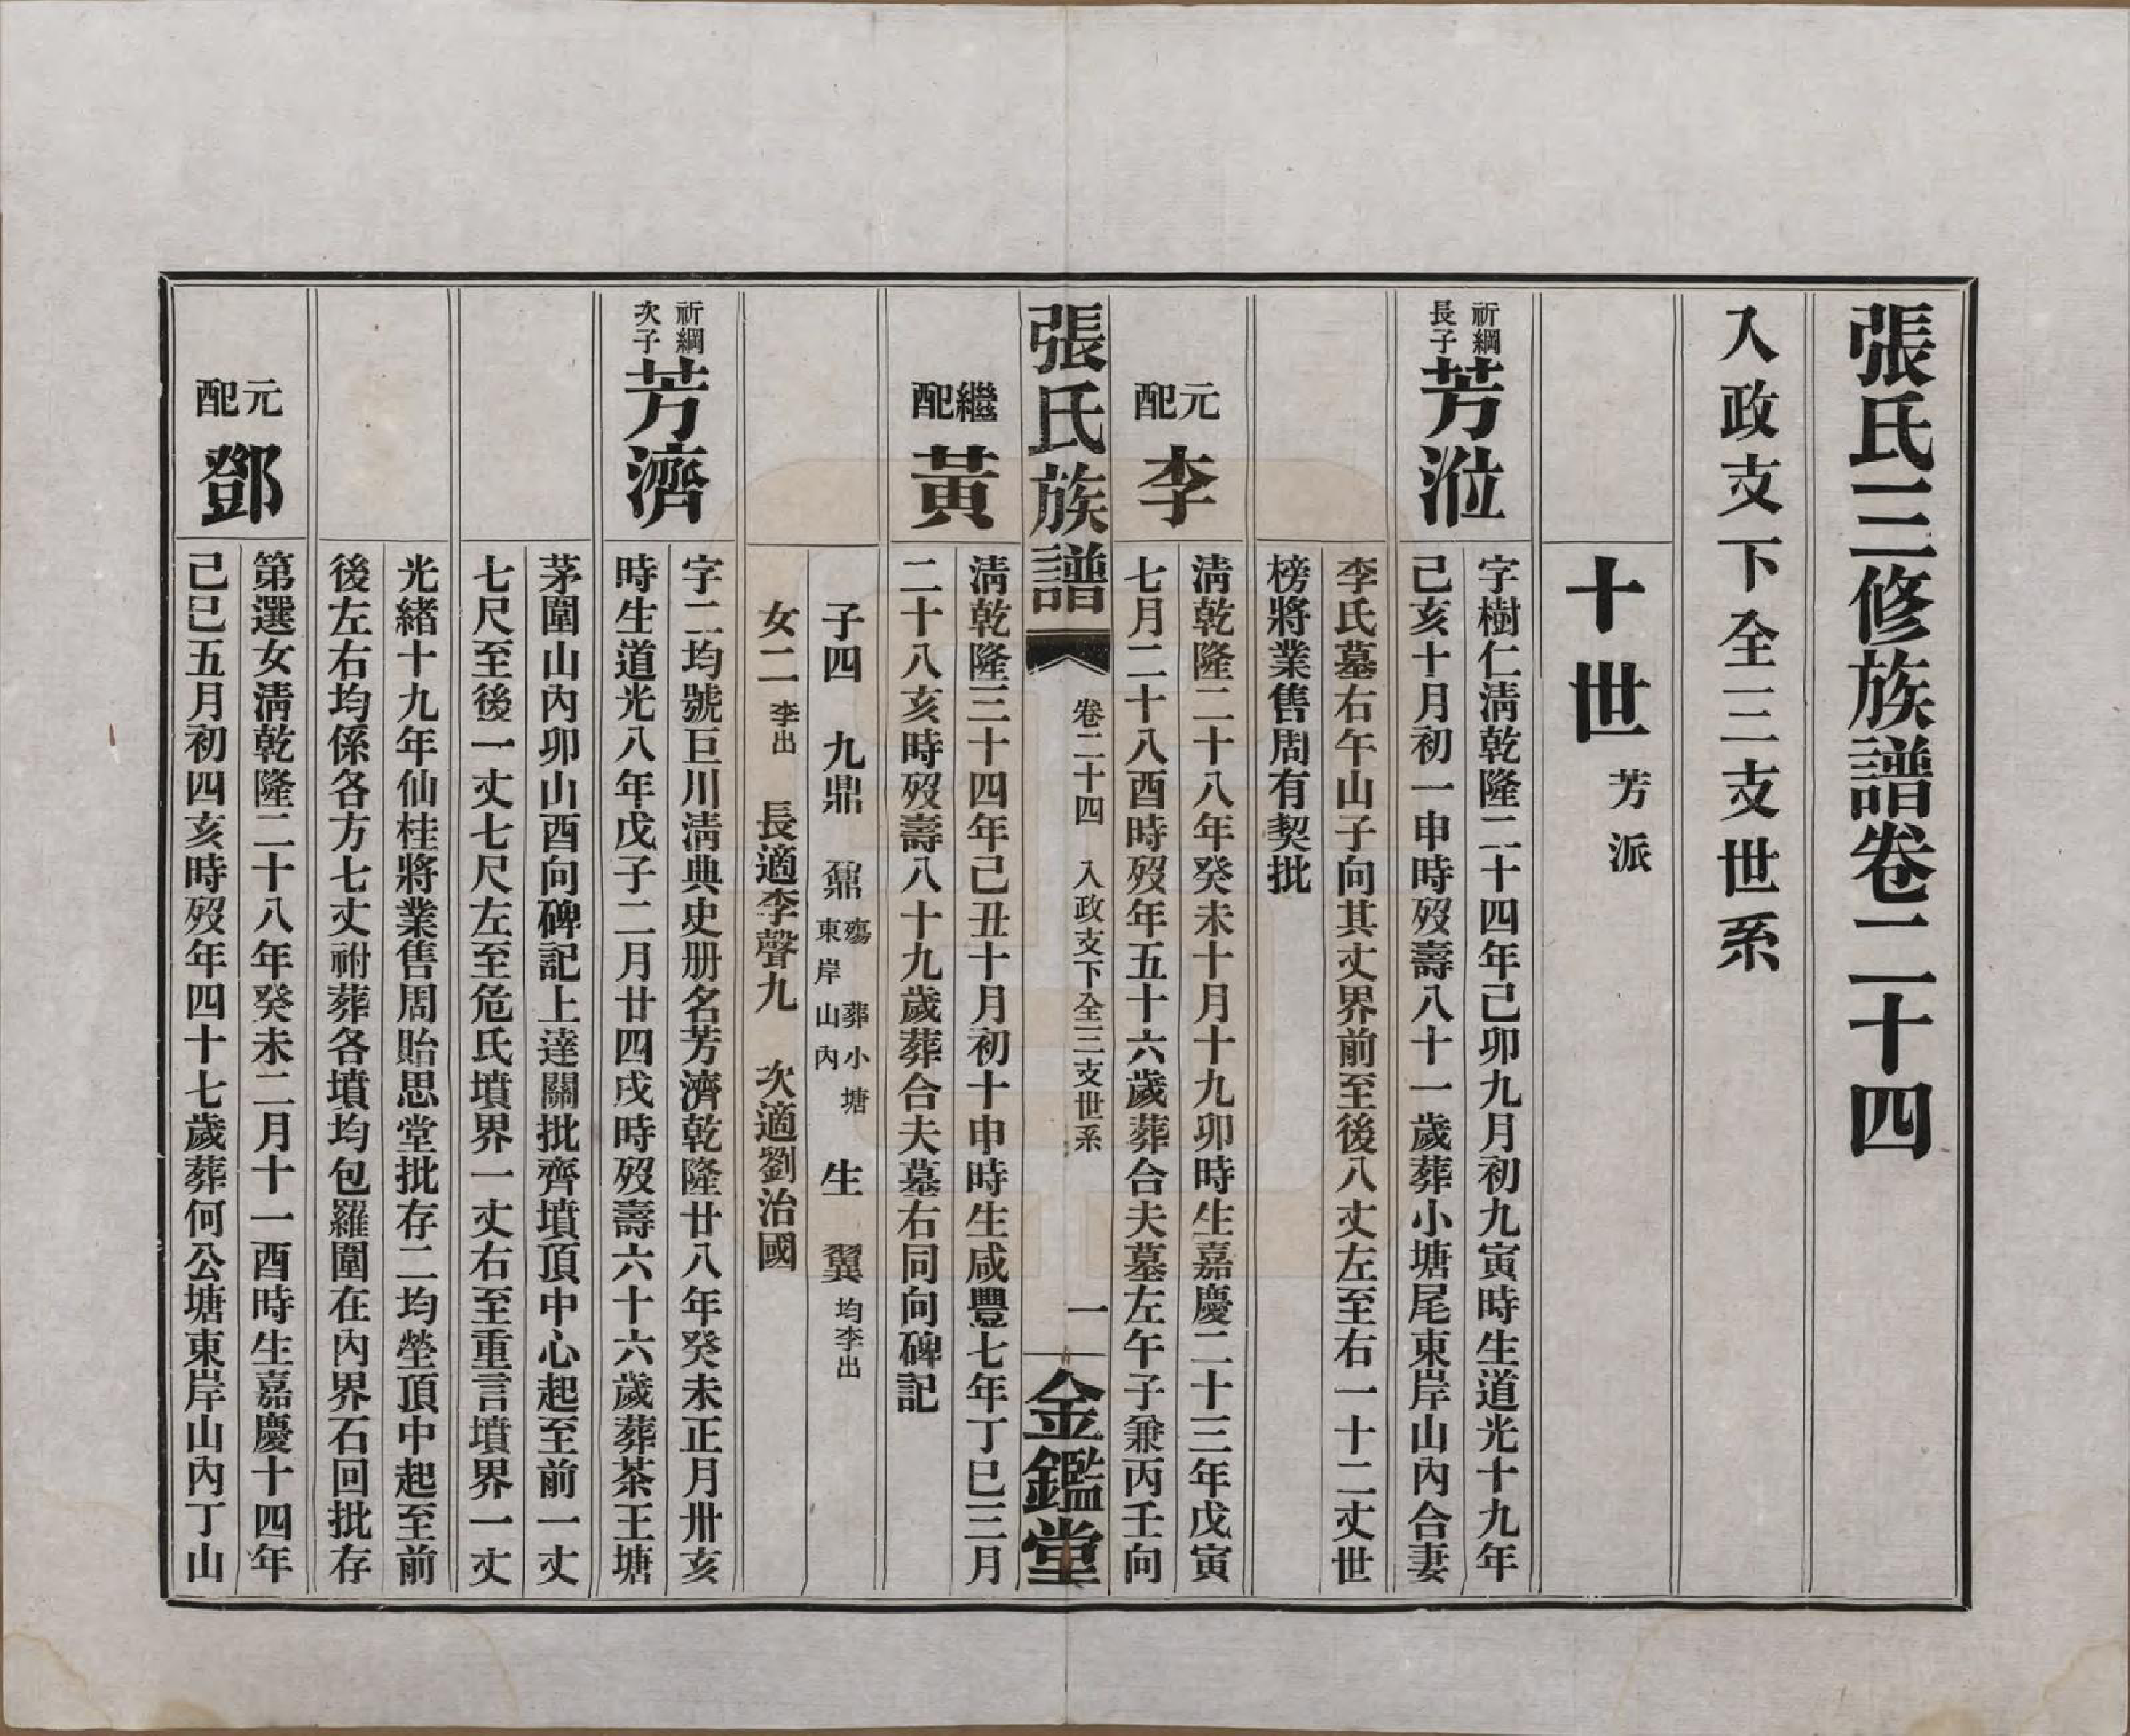 張氏三修族譜卷二十四
入政支下全三支世系
十世 芳派
祈綱長子 芳涖
字樹仁淸乾隆二十四年己卯九月初九寅時生道光十九年
己亥十月初一申時歿壽八十一歲葬小塘尾東岸山內合妻
李氏墓右午山子向其丈界前至後八丈左至右一十二丈世
榜將業售周有契批
元配 李
淸乾隆二十八年癸未十月十九卯時生嘉慶二十三年戊寅
七月二十八酉時歿年五十六歲葬合夫墓左午子兼丙壬向
張氏族譜 卷二十四 入政支下全三支世系 一 金鑑堂
繼配 黃
淸乾隆三十四年己丑十月初十申時生咸豐七年丁巳三月
二十八亥時歿壽八十九歲葬合夫墓右同向碑記
子四 九鼎 鼐 殤葬小塘東岸山內 生 翼 均李出
女二 李出 長適李聲九 次適劉治國
祈綱次子 芳濟
字二均號巨川淸典史册名芳濟乾隆廿八年癸未正月卅亥
時生道光八年戊子二月廿四戌時歿壽六十六歲葬茶王塘
茅圍山內卯山酉向碑記上達關批齊墳頂中心起至前一丈
七尺至後一丈七尺左至危氏墳界一丈右至重言墳界一丈
光緒十九年仙桂將業售周貽思堂批存二均塋頂中起至前
後左右均係各方七丈祔葬各墳均包羅圍在內界石回批存
元配 鄧
第選女淸乾隆二十八年癸未二月十一酉時生嘉慶十四年
己巳五月初四亥時歿年四十七歲葬何公塘東岸山內丁山